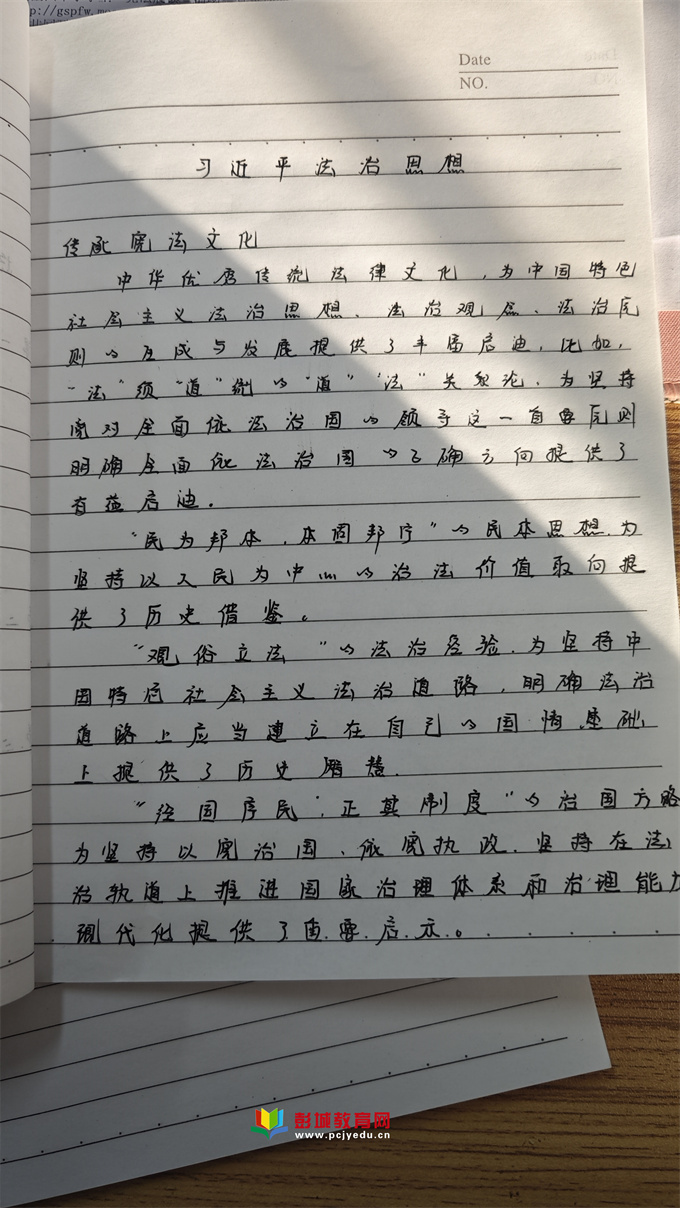 p://gspfw.mo
Date
NO.
习近平法治思想
传承宪法文化
中华优秀传统法律文化,为中国特色
社会主义法治思想、法治观念、法治原
则的生成与发展提供了丰富启迪,比如,
"法"须"道"统的"道""法"关系论,为坚持
党对全面依法治国的领导这一首要原则
明确全面依法治国的正确方向提供了
有益启迪。
"民为邦本,本固邦宁"的民本思想,为
坚持以人民为中心的治法价值取向提
供了历史借鉴。
"观俗立法"的法治经验,为坚持中
国特色社会主义法治道路,明确法治
道路上应当建立在自己的国情基础
上提供了历史智慧.
"经国序民,正其制度"的治国方略
为坚持以宪治国、依宪执政、坚持在法
治轨道上推进国家治理体系和治理能力
现代化提供了重要启示。
彭城教育网
www.pcjyedu.cn